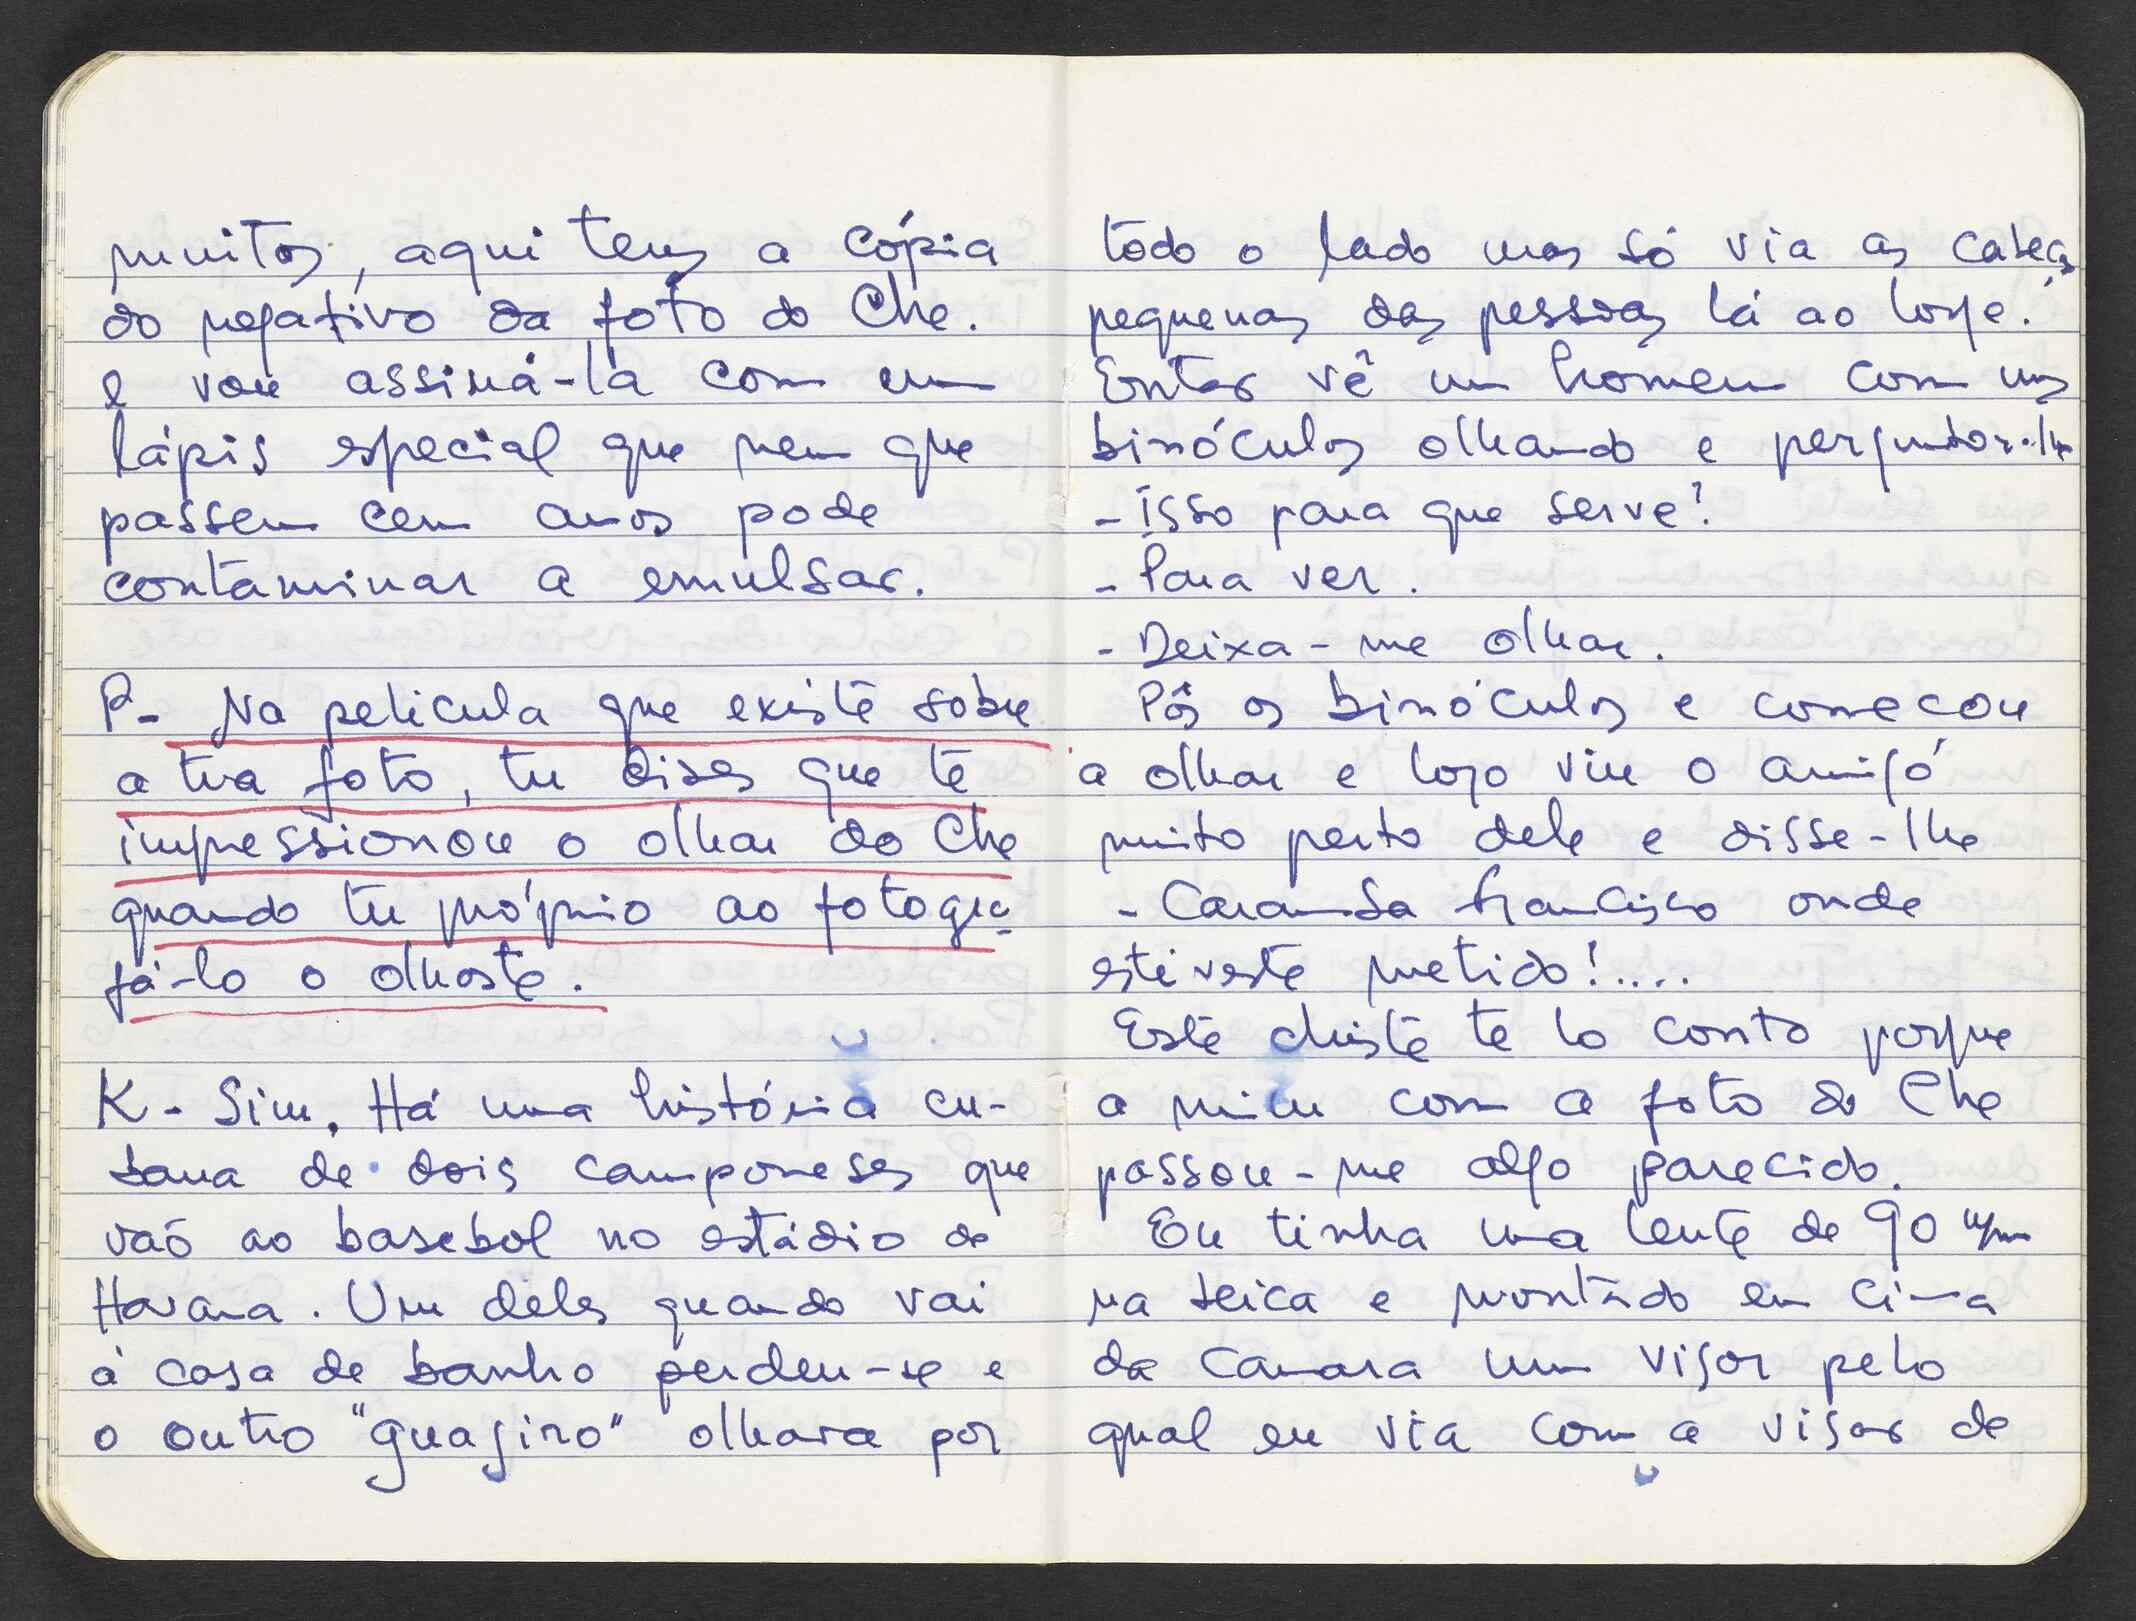 muitos, aqui tens a cópia
do negativo da foto do Che.
e vou assiná-la com um
lápis especial que nem que
passem cem anos pode
contaminar a emulsão.
P- Na pelicula que existe sobre
a tua foto, tu dises que te
impressionou o olhar do Che
quando tu próprio ao fotogra-
fá-lo o olhaste.
K- Sim. Há uma história cu-
bana de dois camponeses que
vão ao basebol no estádio de
Havana. Um deles quando vai
à casa de banho perdeu-se e
o outro "guajiro" olhava por
todo o lado mas só via as cabeças
pequenas das pessoas lá ao longe.
Então vê um homem com uns
binóculos olhando e perguntou-lhe
- Isso para que serve?
- Para ver.
- Deixa-me olhar.
Pôs os binóculos e começou
a olhar e logo viu o amigo
muito perto dele e disse-lhe
- Caramba Francisco onde
estiveste metido!....
Este chiste te lo conto porque
a mim com a foto do Che
passou-me algo parecido.
Eu tinha uma lente de 90 m/m
na Leica e montado em cima
da camara um visor pelo
qual eu via com a visão de